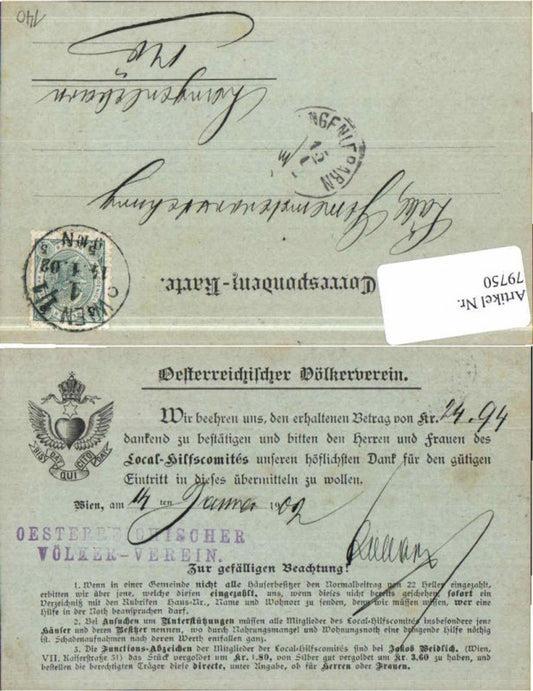 140
Langenlebarn
Correspondenz-Karte.
NGENLEBARN
15
1
WIEN
1
14.1.02
Artikel Nr.
79750
Oesterreichischer Völkerverein.
BIS DAT QUI CITO DAT
Wir beehren uns, den erhaltenen Betrag von Kr. 24.94
dankend zu bestätigen und bitten den Herren und Frauen des
Local-Hilfscomités unseren höflichsten Dank für den gütigen
Eintritt in dieses übermitteln zu wollen.
Wien, am 14 ten Januar 1902
OESTERREICHISCHER
VÖLKER-VEREIN.
Zur gefälligen Beachtung!
1. Wenn in einer Gemeinde nicht alle Häuserbesitzer den Normalbeitrag von 22 Heller eingezahlt,
erbitten wir über jene, welche diesen eingezahlt, uns, wenn dieses nicht bereits geschehen, sofort ein
Verzeichniß mit den Rubriken Haus-Nr., Name und Wohnort zu senden, denn wir müssen wissen, wer eine
Hilfe in der Noth beanspruchen darf.
2. Bei Ansuchen um Unterstützungen müssen alle Mitglieder des Local-Hilfscomités insbesondere jene
Häuser und deren Besitzer nennen, wo durch Nahrungsmangel und Wohnungsnoth eine dringende Hilfe nöthig
ist. Schadenaufnahmen nach deren Werth entfallen ganz.
3. Die Functions-Abzeichen der Mitglieder der Local-Hilfscomités sind bei Jakob Weidlich, (Wien,
VII. Kaiserstraße 51) das Stück vergoldet um Kr. 1.80, von Silber gut vergoldet um Kr. 3.60 zu haben, und
bestellen die berechtigten Träger diese directe, unter Angabe, ob für Herren oder Frauen.